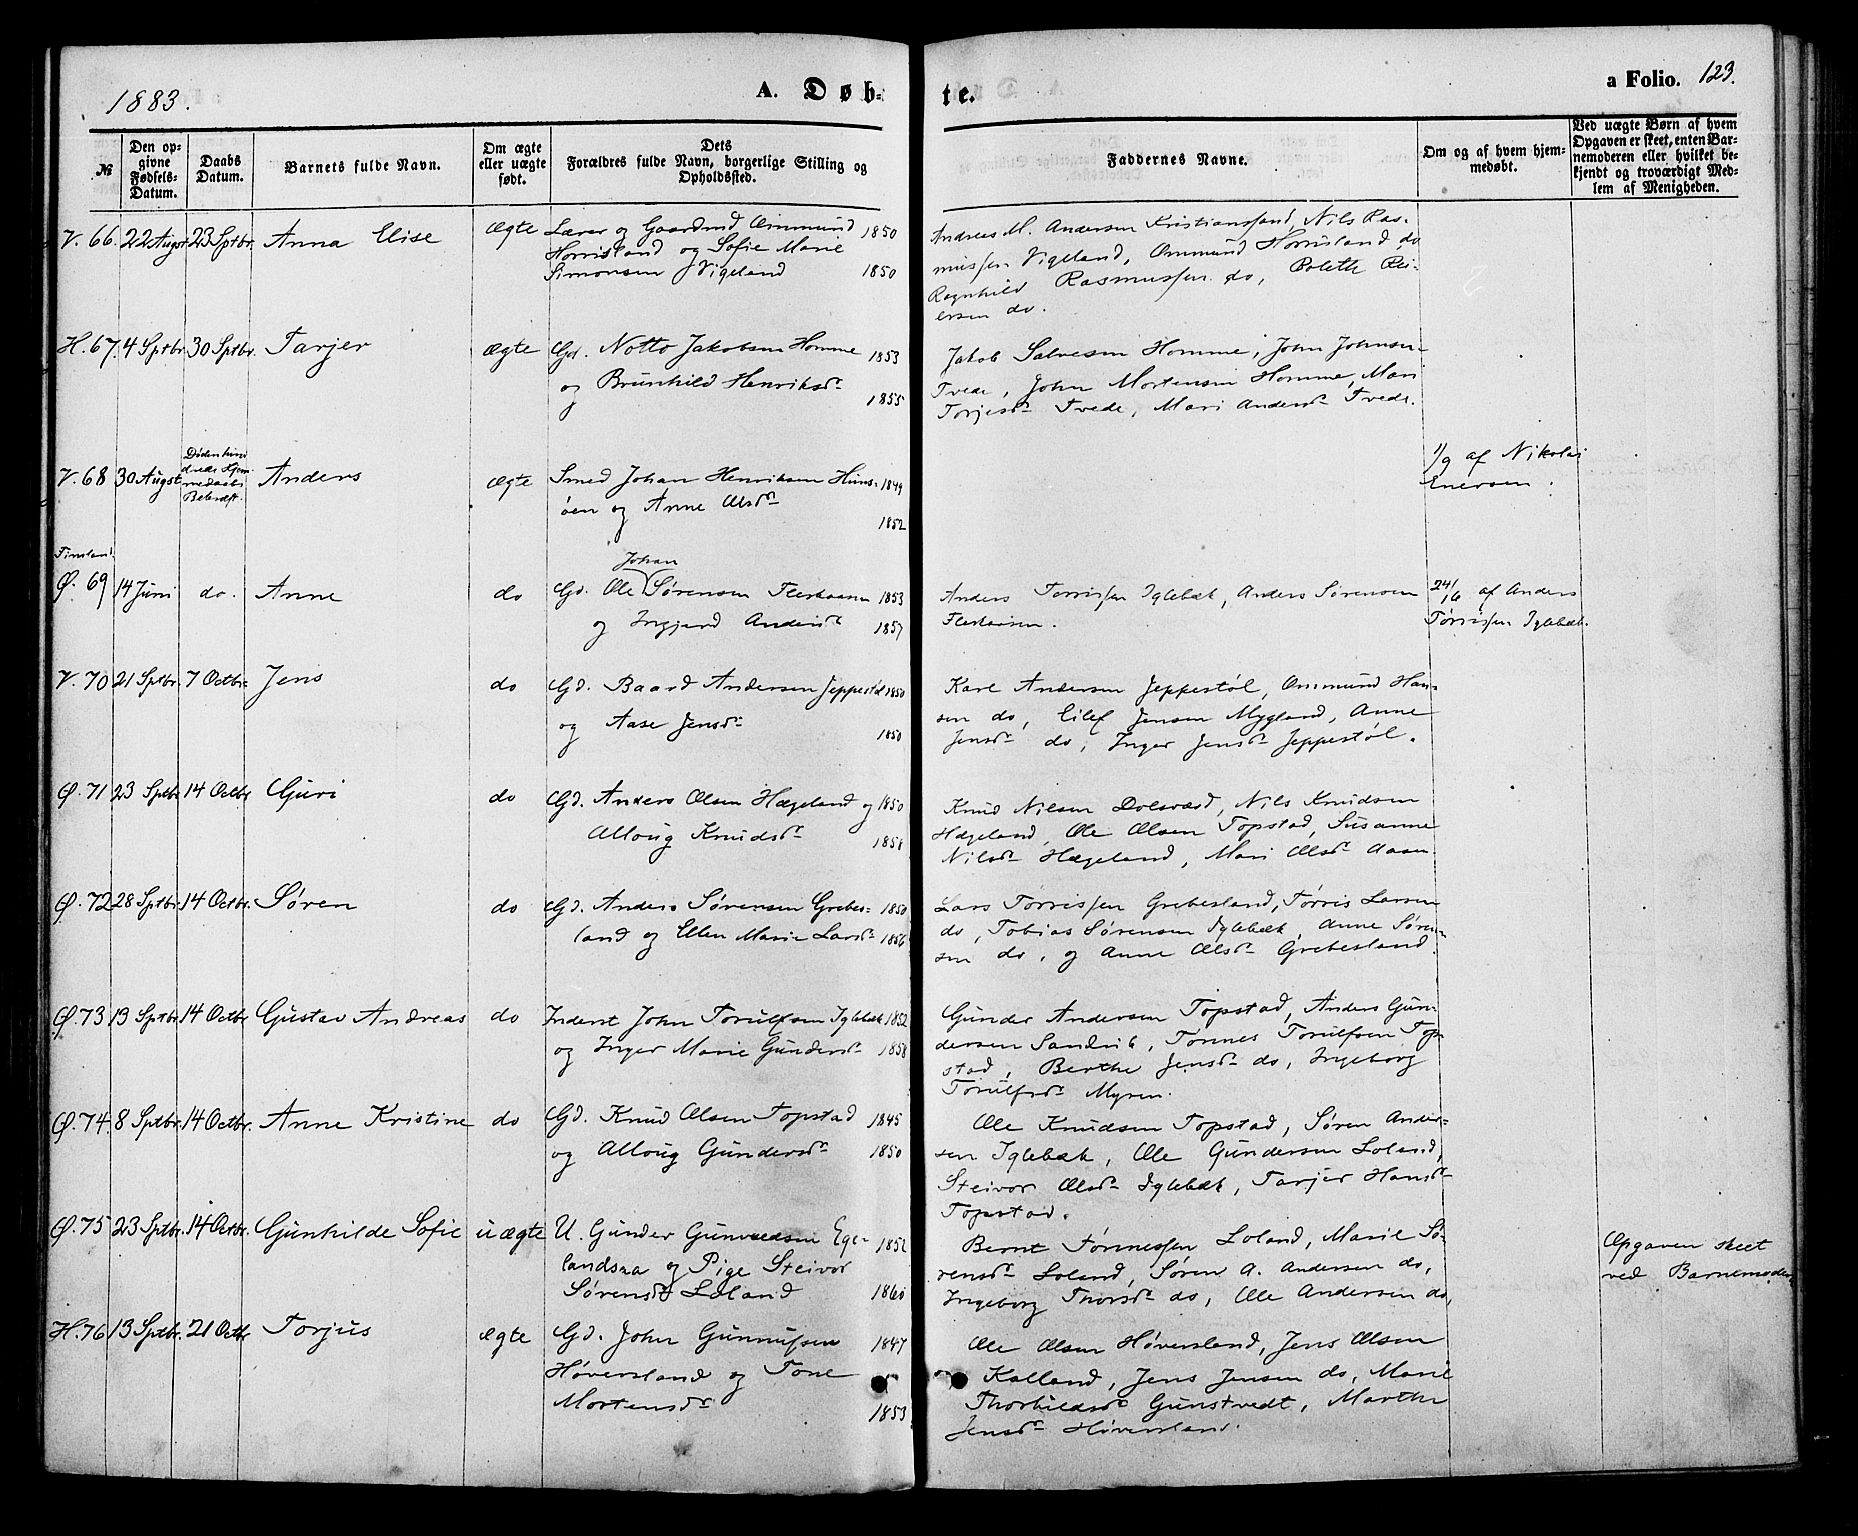 1883.
A. Døb-
te.
a Folio. 123.
№
Den op-
givne
Fødsels-
Datum.
Daabs
Datum.
Barnets fulde Navn.
Om ægte
eller uægte
født.
Dets
Forældres fulde Navn, borgerlige Stilling og
Opholdssted.
Faddernes Navne.
Om og af hvem hjem-
medøbt.
Ved uægte Børn af hvem
Opgaven er skeet, enten Bar-
nemoderen eller hvilket be-
kjendt og troværdigt Med-
lem af Menigheden.
V. 66. 22 Augst 23 Sptbr. Anna Elise ægte Lærer og Gaardmd Ommund 1850
Horrisland og Sofie Marie
Simonsen Vigeland 1850
Andreas M. Andersen Kristianssand, Nils Ras-
mussen Vigeland, Ommund Horrisland do
Ragnhild Rasmussen do, Bolette Rei-
ersen do.
H. 67. 4 Sptbr. 30 Sptbr. Tarjer ægte Gd. Notto Jakobsen Homme 1853
og Brunhild Henriksdr 1855
Jakob Salvesen Homme, John Johnsen
Tvede, John Mortensen Homme, Mari
Torjesdr Tvede, Mari Andersdr Tvede.
V. 68 30 Augst. Døden hindrede Hjemmedaabs Bekræft. Anders ægte Smed Johan Henriksen Huns- 1849
øen og Anne Olsdr 1852
1/9 af Nikolai
Enersen.
Ø. 69 14 Juni do. Anne do Gd. Ole Johan Sørensen Fleskaasen 1853
og Ingjerd Andersdr 1857
Anders Torrissen Iglebæk, Anders Sørensen
Fleskaasen.
24/6 af Anders
Tørrissen Iglebæk.
V. 70 21 Sptbr. 7 Octbr. Jens do Gd. Baard Andersen Jeppestøl 1850
og Aase Jensdr 1850
Karl Andersen Jeppestøl, Ommund Han-
sen do, Eilef Jensen Mygland, Anne
Jensdr do, Inger Jensdr Jeppestøl.
Ø. 71 23 Sptbr 14 Octbr Guri do Gd. Anders Olsen Hægeland og 1850
Alloug Knudsdr 1858
Knud Nilsen Dolsvæd, Nils Knudsen
Hægeland, Ole Olsen Topstad, Susanne
Nilsdr Hægeland, Mari Olsdr Aasen
Ø. 72 28 Sptbr. 14 Octbr. Søren do Gd. Anders Sørensen Grebes- 1850
land og Ellen Marie Larsdr 1856
Lars Tørrissen Grebesland, Tørris Larsen
do, Tobias Sørensen Iglebæk, Anne Søren-
sen do, og Anne Olsdr Grebesland.
Ø. 73 13 Sptbr. 14 Octbr Gustav Andreas do Inderst John Torulfsen Iglebæk 1852
og Inger Marie Gundersdr 1858
Gunder Andersen Topstad, Anders Gun-
dersen Sandvik, Tønnes Torulfsen Top-
stad, Berthe Jensdr do, Ingeborg
Torulfsdr Myren.
Ø. 74. 8 Sptbr. 14 Octbr. Anne Kristine do Gd. Knud Olsen Topstad 1845
og Alloug Gundersdr 1850
Ole Knudsen Topstad, Søren Ander-
sen Iglebæk, Ole Gundersen Loland,
Steivor Olsdr Iglebæk, Tarjer Hansdr
Topstad.
Ø. 75 23 Sptbr 14 Octbr. Gunhilde Sofie uægte U. Gunder Gunvaldsen Ege- 1852
landsaa og Pige Steivor
Sørensdr Loland 1860
Bernt Tønnessen Loland, Marie Sø-
rensdr Loland, Søren A. Andersen do,
Ingeborg Thorsdr do, Ole Andersen do,
Opgaven skeet
ved Barnemoder.
H. 76 13 Sptbr. 21 Octbr Torjus ægte Gd. John Gunnufsen 1847
Høversland og Tone
Mortensdr 1853
Ole Olsen Høversland, Jens Olsen
Kalland, Jens Jensen do, Marie
Thorkildsdr Gunstvedt, Marthe
Jensdr Høversland.